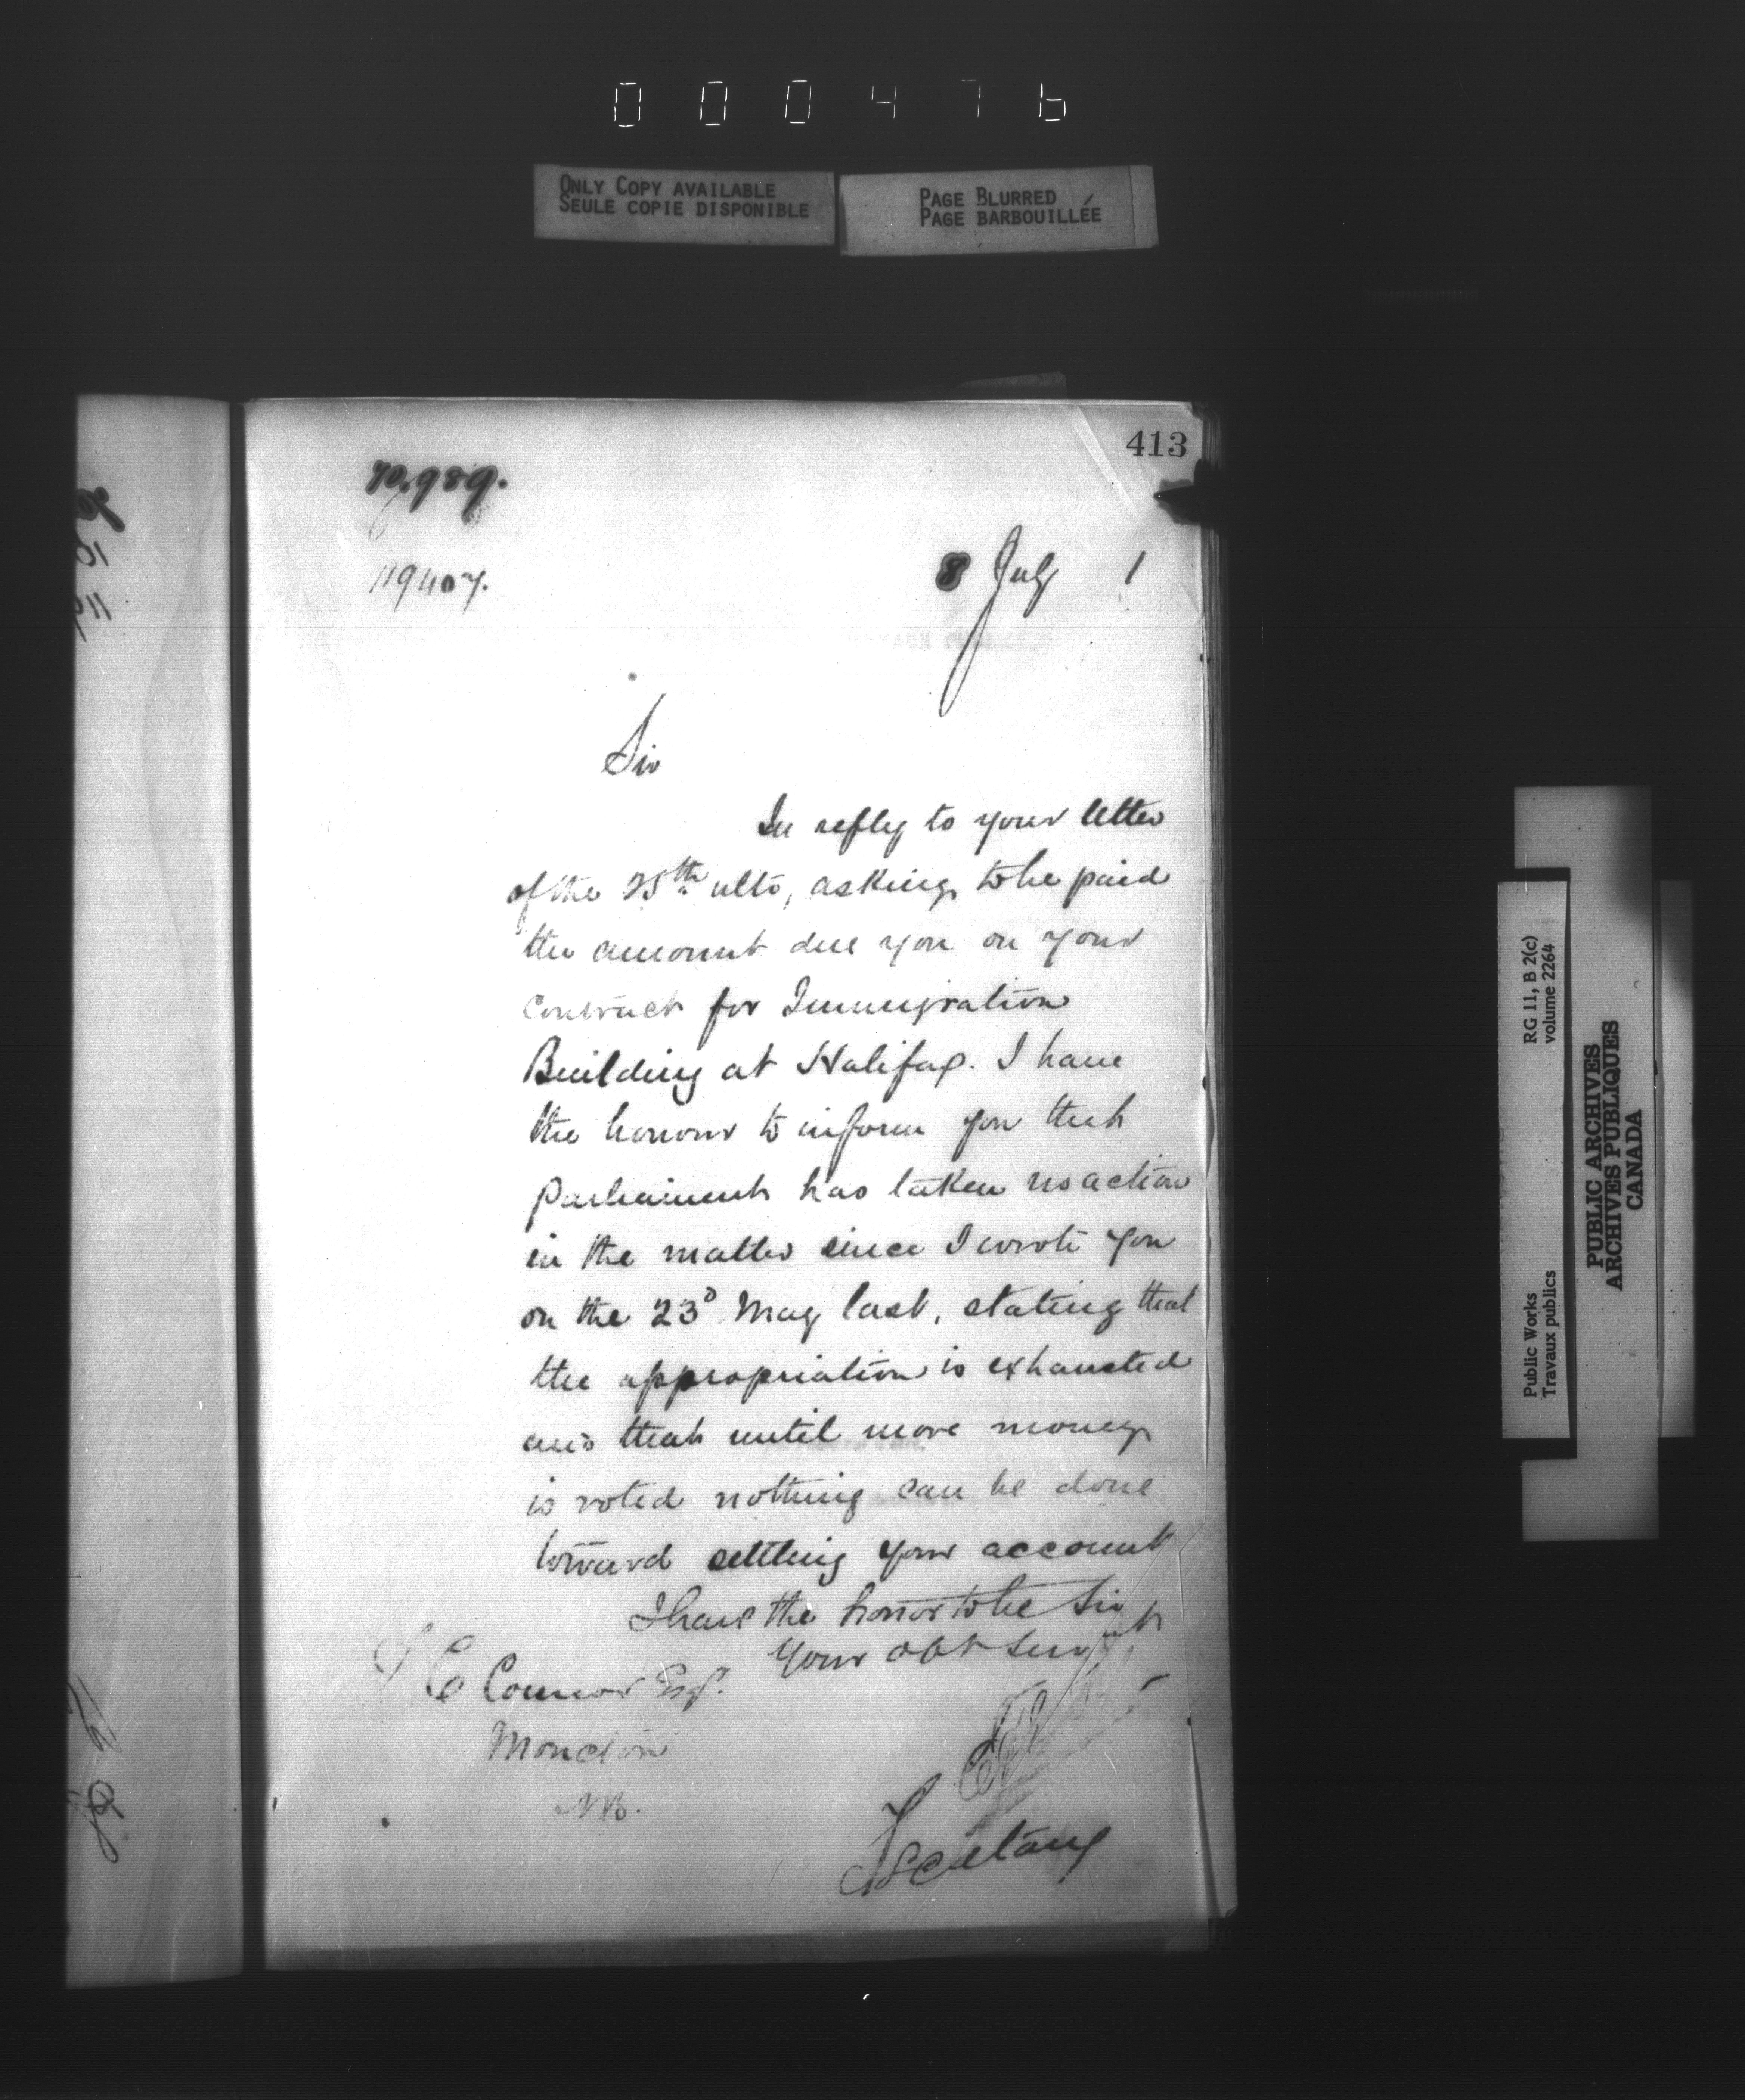 000476
ONLY COPY AVAILABLE
SEULE COPIE DISPONIBLE
PAGE BLURRED
PAGE BARBOUILLÉE
413
70,989.
119407.
8 July 1
Sir
In reply to your letter
of the 25th ulto, asking to be paid
the amount due you on your
contract for Immigration
Building at Halifax. I have
the honour to inform you that
Parliament has taken no action
in the matter since I wrote you
on the 23d May last, stating that
the appropriation is exhausted
and that until more money
is voted nothing can be done
toward settling your account
I have the honor to be Sir
Your obt servt
C Connor Esq.
Moncton
NB.
Secretary
RG 11, B 2(c)
volume 2264
Public Works
Travaux publics
PUBLIC ARCHIVES
ARCHIVES PUBLIQUES
CANADA